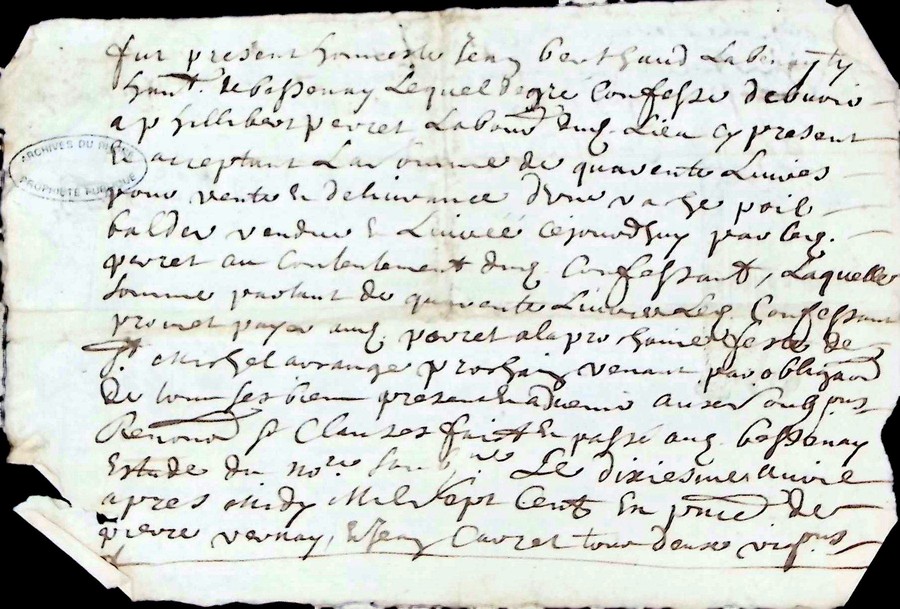 fut present honneste Jean berthaud Laben
hant. de bessenay Lequel de gré Confesse debvoir
a p. Gillibert perret Labour. dud. Lieu cy present
Et acceptant La somme de quarente Livres
ARCHIVES DU RHÔNE
PROPRIÉTÉ PUBLIQUE
pour vente Et delivrance d'une vache poil
vendue Et Livrée cejourdhuy par led.
perret au Contentement dud. Confessant, Laquelle
somme partant de quarente Livres Led. Confessant
promet payer aud. perret a la prochaine feste de
St. Michel archange prochain venant par obligaon
de tous ses bien present Et advenir
Renon Et Clauses fait Et passé aud. bessenay
Estude du nore. Le dixiesme
apres Midy Mil sept Cent En pnce de
pierre vernay, Et Jean Carret tous deux